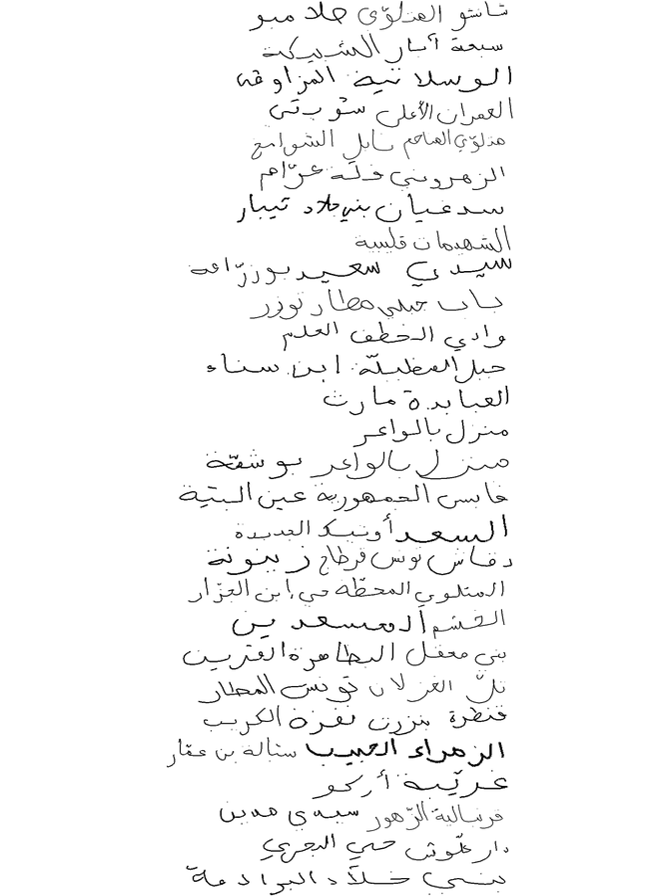 شانشو المتلوّي جلامبو
سبعة أبار الشبيكة
الوسلاتية المزاوقة
العمران الأعلى ستوتي
متلوّي الماجم نابل الشوامخ
الزهروني فلّة عرّام
سدغيان بني خلاد تيبار
الشهيمات قليبية
سيدي سعيد بوزرّافة
باب جبلي مطار توزر
وادي الخطف العلم
جبل العظيلّة ابن سناء
العبابدة مارث
منزل بالواعر
منزل بالواعر بوشفّة
قابس الجمهورية عين البتية
السعد أوتيك الجديدة
دقاش تونس قرطاج زيتونة
المتلوي المحطّة حي إبن الجزّار
الخشم المسعدين
بني معقل الطاهرة القترين
تلّ الغزلان تونس المطار
قنطرة بنزرت نفزة الكريب
الزهراء الحبيب ستالة بن عمّار
غريّبة أركو
قرنبالية الزّهور سيدي مدين
دار علّوش حي البحري
بني خلّاد البرادعة